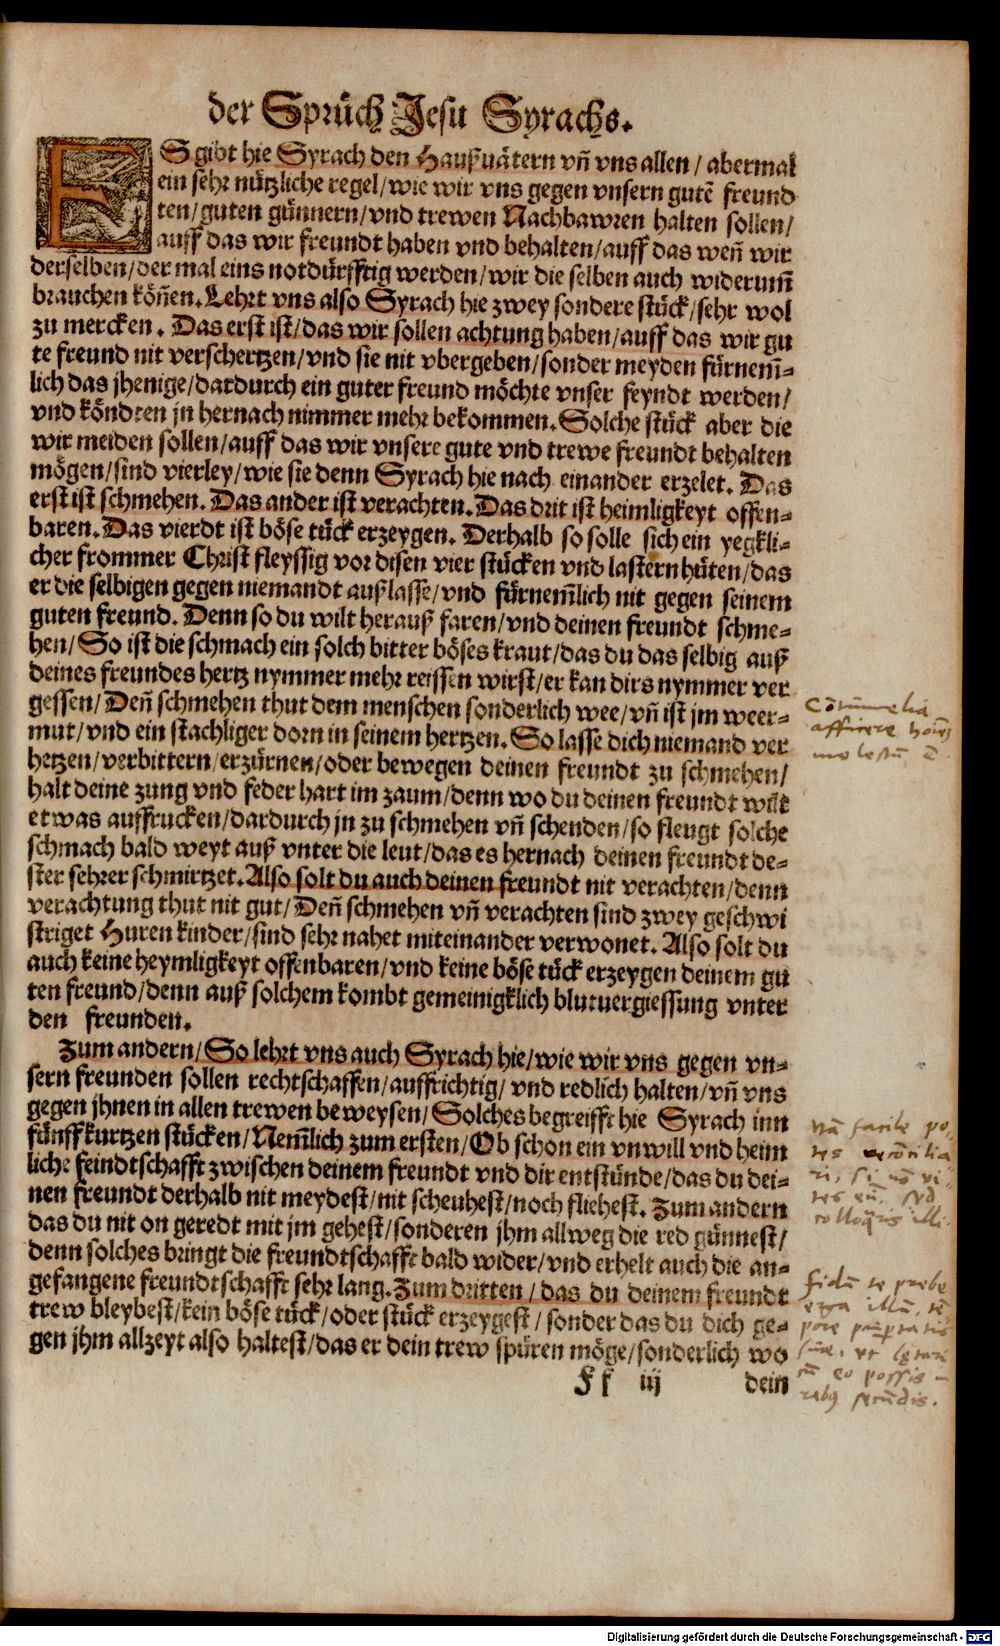 der Sprüch Jesu Syrachs.
ES gibt hie Syrach den Haußvätern vn̄ vns allen / abermal
ein sehr nützliche regel/wie wir vns gegen vnsern gutē freund
ten/guten günnern/vnd trewen Nachbawren halten sollen/
auff das wir freundt haben vnd behalten/auff das wen̄ wir
derselben/der mal eins notdürfftig werden/wir die selben auch widerum̄
brauchen kön̄en. Lehrt vns also Syrach hie zwey sondere stück/sehr wol
zu mercken. Das erst ist/das wir sollen achtung haben/auff das wir gu
te freund nit verschertzen/vnd sie nit vbergeben/sonder meyden fürnem̄-
lich das jhenige/dardurch ein guter freund möchte vnser feyndt werden/
vnd köndten jn hernach nimmer mehr bekommen. Solche stück aber die
wir meiden sollen/auff das wir vnsere gute vnd trewe freundt behalten
mögen/sind vierley/wie sie denn Syrach hie nach einander erzelet. Das
erst ist schmehen. Das ander ist verachten. Das drit ist heimligkeyt offen-
baren. Das vierdt ist böse tück erzeygen. Derhalb so solle sich ein yegkli-
cher frommer Christ fleyssig vor disen vier stücken vnd lastern hüten/das
er die selbigen gegen niemandt außlasse/vnd fürnem̄lich nit gegen seinem
guten freund. Denn so du wilt herauß faren/vnd deinen freundt schme-
hen/So ist die schmach ein solch bitter böses kraut/das du das selbig auß
deines freundes hertz nymmer mehr reissen wirst/er kan dirs nymmer ver
gessen/Den̄ schmehen thut dem menschen sonderlich wee/vn̄ ist jm weer-
mut/vnd ein stachliger dorn in seinem hertzen. So lasse dich niemand ver
hetzen/verbittern/erzürnen/oder bewegen deinen freundt zu schmehen/
halt deine zung vnd feder hart im zaum/denn wo du deinen freundt wilt
etwas auffrucken/dardurch jn zu schmehen vn̄ schenden/so fleugt solche
schmach bald weyt auß vnter die leut/das es hernach deinen freundt de-
ster sehrer schmirtzet. Also solt du auch deinen freundt nit verachten/denn
verachtung thut nit gut/Den̄ schmehen vn̄ verachten sind zwey geschwi
striget Huren kinder/sind sehr nahet miteinander verwonet. Also solt du
auch keine heymligkeyt offenbaren/vnd keine böse tück erzeygen deinem gu
ten freund/denn auß solchem kombt gemeinigklich blutuergiessung vnter
den freunden.
Zum andern/So lehrt vns auch Syrach hie/wie wir vns gegen vn-
sern freunden sollen rechtschaffen/auffrichtig/ vnd redlich halten/vn̄ vns
gegen jhnen in allen trewen beweysen/Solches begreifft hie Syrach inn
fünff kurtzen stücken/Nem̄lich zum ersten/Ob schon ein vnwill vnd heim
liche feindtschafft zwischen deinem freundt vnd dir entstünde/das du dei-
nen freundt derhalb nit meydest/nit scheuhest/noch fliehest. Zum andern
das du nit on geredt mit jm gehest/sonderen jhm allweg die red günnest/
denn solches bringt die freundtschafft bald wider/vnd erhelt auch die an-
gefangene freundtschafft sehr lang. Zum dritten/das du deinem freundt
trew bleybest/kein böse tück/oder stück erzeygest/sonder das du dich ge-
gen jhm allzeyt also haltest/das er dein trew spüren möge/sonderlich wo
Ff iij dein
Nā facile po-
colloquiis illi
Fidū te prebe
erga illū, tē
pore paup̄tatis
ut lętari
cū eo possis in
rebꝰ secūdis.
Digitalisierung gefördert durch die Deutsche Forschungsgemeinschaft - DFG